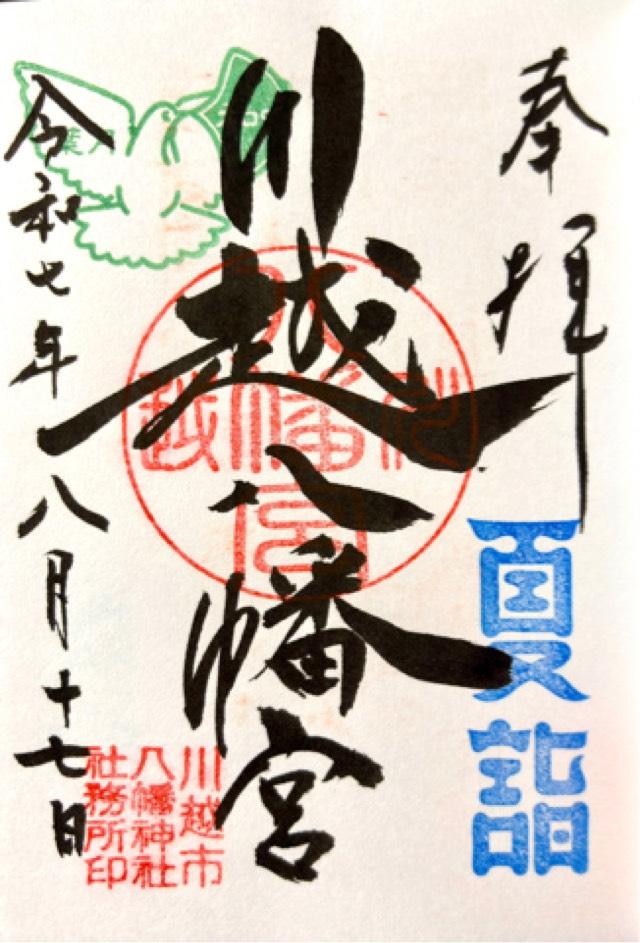 奉拝
夏詣
川越八幡宮
川越
八幡宮
令和七年八月十七日
川越市
八幡神社
社務所印